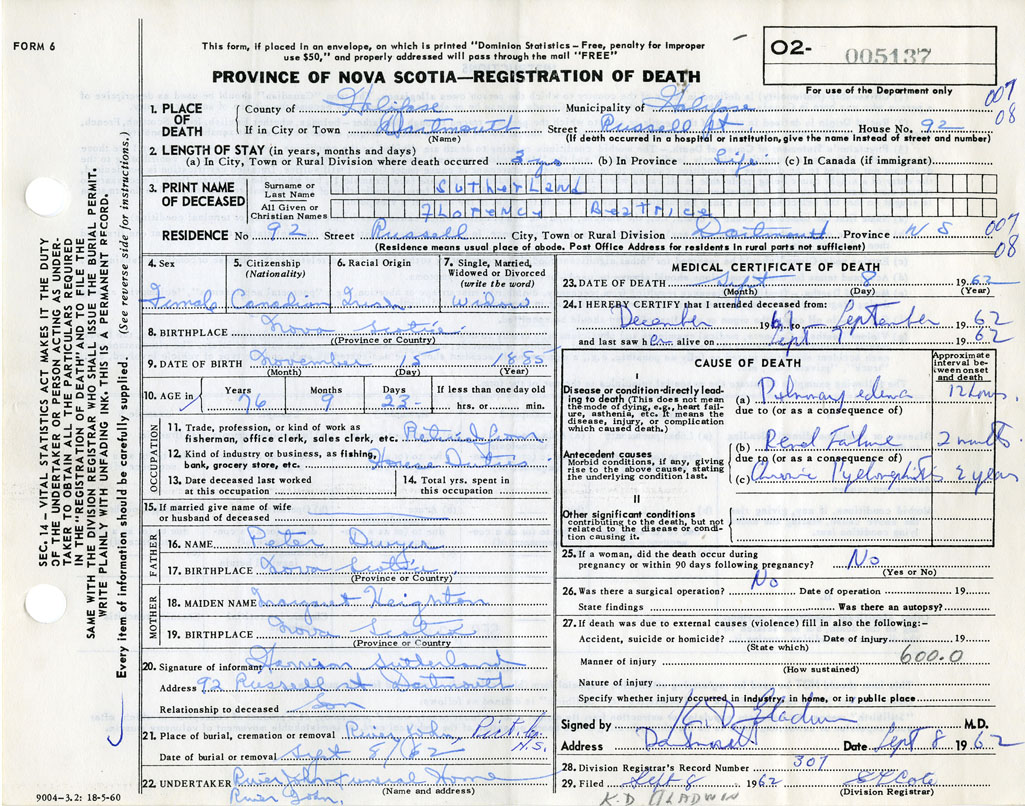 FORM 6
This form, if placed in an envelope, on which is printed "Dominion Statistics – Free, penalty for improper
use $50," and properly addressed will pass through the mail "FREE"
PROVINCE OF NOVA SCOTIA—REGISTRATION OF DEATH
O2- 005137
For use of the Department only
007
08
1. PLACE OF DEATH
County of Halifax Municipality of Halifax
If in City or Town Dartmouth Street Russell St. House No. 92
(Name) (If death occurred in a hospital or institution, give the name instead of street and number)
2. LENGTH OF STAY (in years, months and days)
(a) In City, Town or Rural Division where death occurred 3 yrs (b) In Province Life (c) In Canada (if immigrant)
3. PRINT NAME OF DECEASED
Surname or Last Name Sutherland
All Given or Christian Names Florence Beatrice
RESIDENCE No 92 Street Russell City, Town or Rural Division Dartmouth Province N S
007
08
(Residence means usual place of abode. Post Office Address for residents in rural parts not sufficient)
4. Sex Female
5. Citizenship (Nationality) Canadian
6. Racial Origin Irish
7. Single, Married, Widowed or Divorced (write the word) Widow
8. BIRTHPLACE Nova Scotia
(Province or Country)
9. DATE OF BIRTH November 15 1885
(Month) (Day) (Year)
10. AGE in Years 76 Months 9 Days 23 If less than one day old hrs. or min.
OCCUPATION
11. Trade, profession, or kind of work as fisherman, office clerk, sales clerk, etc. Retired from
12. Kind of industry or business, as fishing, bank, grocery store, etc. House Duties
13. Date deceased last worked at this occupation
14. Total yrs. spent in this occupation
15. If married give name of wife or husband of deceased
FATHER
16. NAME Peter Dwyer
17. BIRTHPLACE Nova Scotia
(Province or Country)
MOTHER
18. MAIDEN NAME Margaret Heighton
19. BIRTHPLACE Nova Scotia
(Province or Country)
20. Signature of informant Harrison Sutherland
Address 92 Russell St Dartmouth
Relationship to deceased Son
21. Place of burial, cremation or removal River John, Pict. Co. N.S.
Date of burial or removal Sept 8/62
22. UNDERTAKER River John Funeral Home
(Name and address)
River John,
9004-3.2: 18-5-60
MEDICAL CERTIFICATE OF DEATH
23. DATE OF DEATH Sept 8 1962
(Month) (Day) (Year)
24. I HEREBY CERTIFY that I attended deceased from:
December 1961 to September 1962
and last saw her alive on Sept 7 1962
CAUSE OF DEATH
Approximate interval between onset and death
I
Disease or condition directly leading to death (This does not mean the mode of dying, e.g., heart failure, asthenia, etc. It means the disease, injury, or complication which caused death.)
(a) Pulmonary edema 12 hours.
due to (or as a consequence of)
Antecedent causes
Morbid conditions, if any, giving rise to the above cause, stating the underlying condition last.
(b) Renal Failure 2 months
due to (or as a consequence of)
(c) Chronic Pyelonephritis 2 years
II
Other significant conditions
contributing to the death, but not related to the disease or condition causing it.
25. If a woman, did the death occur during pregnancy or within 90 days following pregnancy? No
(Yes or No)
26. Was there a surgical operation? No Date of operation 19
State findings Was there an autopsy?
27. If death was due to external causes (violence) fill in also the following:-
Accident, suicide or homicide? Date of injury 19
(State which)
Manner of injury 600.0
(How sustained)
Nature of injury
Specify whether injury occurred in industry, in home, or in public place
Signed by K. D Gladwin M.D.
Address Dartmouth Date Sept 8 1962
28. Division Registrar's Record Number 307
29. Filed Sept 8 1962
(Division Registrar)
K.D GLADWIN
SEC. 14 – VITAL STATISTICS ACT MAKES IT THE DUTY
OF THE UNDERTAKER OR PERSON ACTING AS UNDER-
TAKER TO OBTAIN ALL THE PARTICULARS REQUIRED
IN THE "REGISTRATION OF DEATH" AND TO FILE THE
SAME WITH THE DIVISION REGISTRAR WHO SHALL ISSUE THE BURIAL PERMIT.
WRITE PLAINLY WITH UNFADING INK. THIS IS A PERMANENT RECORD.
Every item of information should be carefully supplied. (See reverse side for instructions.)